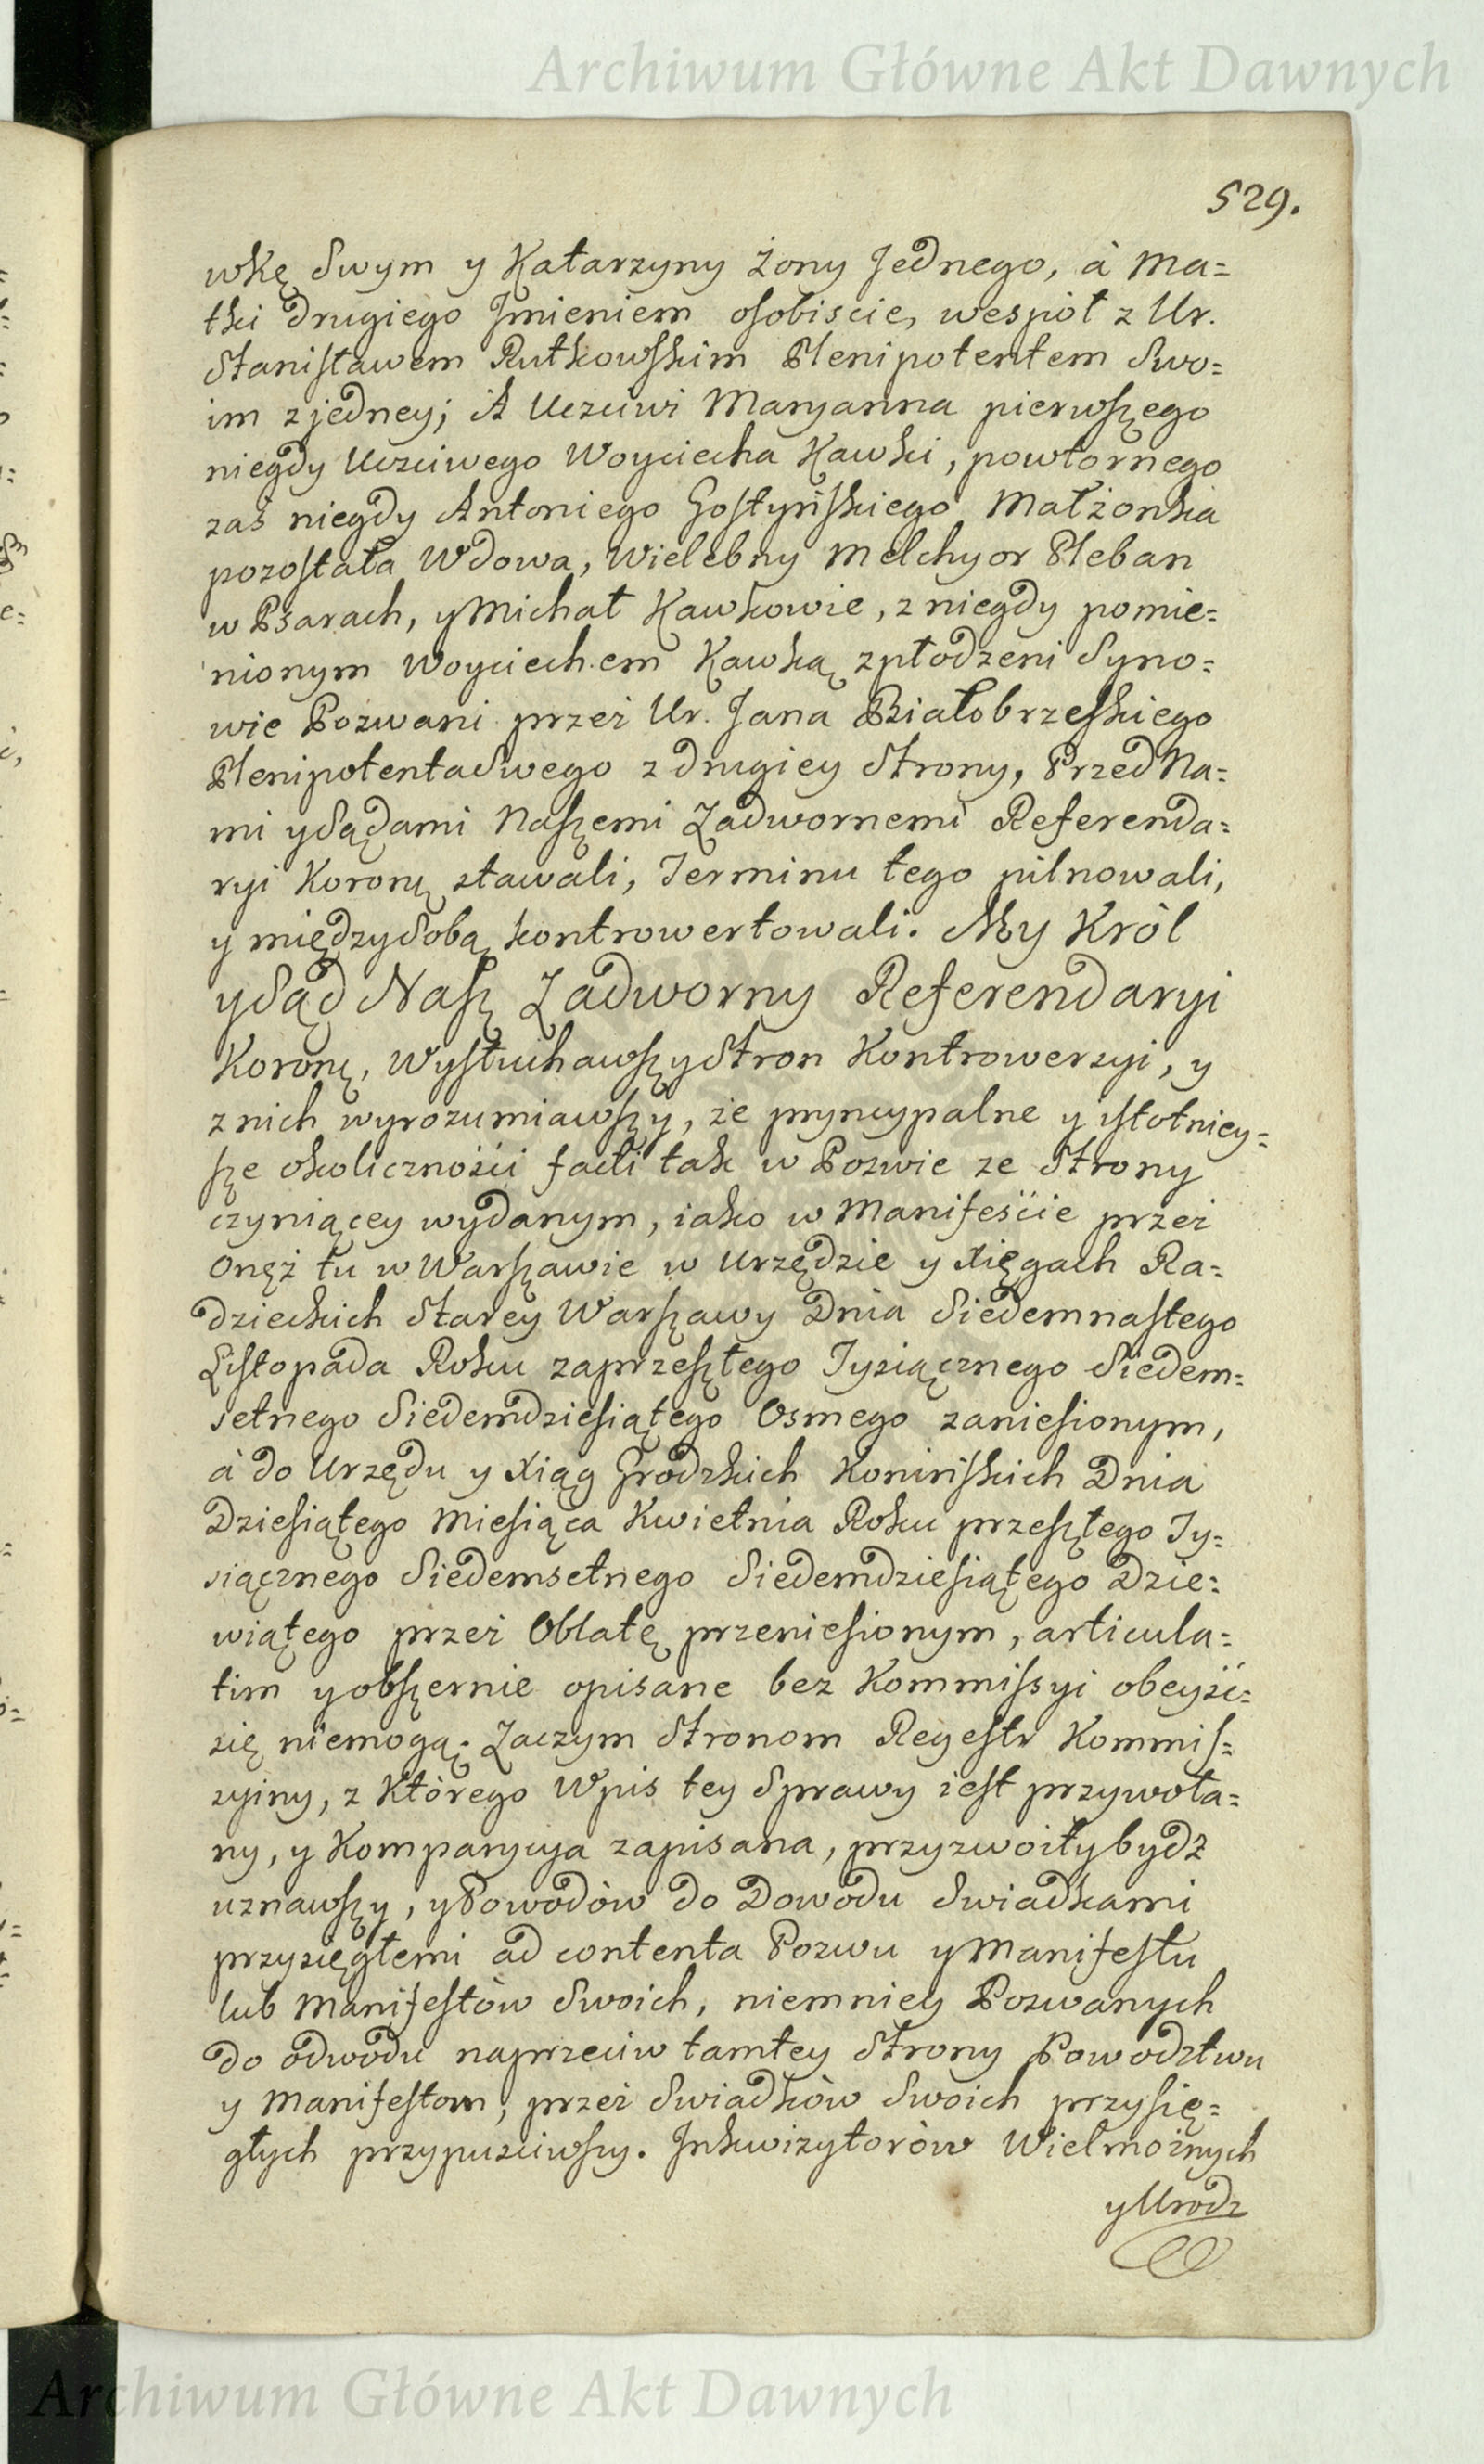 Archiwum Główne Akt Dawnych
529.
wkę Swym y Katarzyny Żony Jednego, à Ma=
tki drugiego Jmieniem osobiscie, wespoł z Ur.
Stanisławem Rutkowskim Plenipotentem Swo=
im z jedney; A Uczciwi Maryanna pierwszego
niegdy Uczciwego Woyciecha Kawki, powtornego
zaś niegdy Antoniego Gostyńskiego Małżonka
pozostała Wdowa, Wielebny Melchyor Pleban
w Psarach, y Michał Kawkowie, z niegdy pomie=
nionym Woyciechem Kawką zpłodzeni Syno=
wie Pozwani przez Ur. Jana Białobrzeskiego
Plenipotenta Swego z drugiey Strony, Przed Na=
mi y Sądami Naszemi Zadwornemi Referenda=
ryi Koronn: stawali, Terminu tego pilnowali,
y między Sobą kontrowertowali. My Kròl
y Sąd Nasz Zadworny Referendaryi
Koronn: Wysłuchawszy Stron Kontrowerzyi, y
z nich wyrozumiawszy, że pryncypalne y istotniey=
sze okolicznośći facti tak w Pozwie ze Strony
czyniącey wydanym, iako w Manifeśćie przez
Onęż tu w Warszawie w Urzędzie y Xięgach Ra=
dzieckich Starey Warszawy Dnia Siedemnastego
Listopada Roku zaprzeszłego Tysiącznego Siedem=
setnego Siedemdziesiątego Osmego zaniesionym,
à do Urzędu y Xiąg Grodzkich Konińskich Dnia
Dziesiątego Miesiąca Kwietnia Roku przeszłego Ty=
siącznego Siedemsetnego Siedemdziesiątego Dzie=
wiątego przez Oblatę przeniesionym, articula=
tim y obszernie opisane bez Kommissyi obeyść=
się niemogą. Zaczym Stronom Regestr Kommis=
syiny, z Ktòrego Wpis tey Sprawy iest przywoła=
ny, y Komparycya zapisana, przyzwoity bydź
uznawszy, y Powodòw do Dowodu Swiadkami
przysięgłemi ad contenta Pozwu y Manifestu
lub Manifestòw Swoich, niemniey Pozwanych
do odwodu naprzeciw tamtey Strony Powodztwu
y Manifestom, przez Swiadkòw Swoich przysię=
głych przypuściwszy. Inkwizytoròw Wielmożnych
y Urodz
Archiwum Główne Akt Dawnych